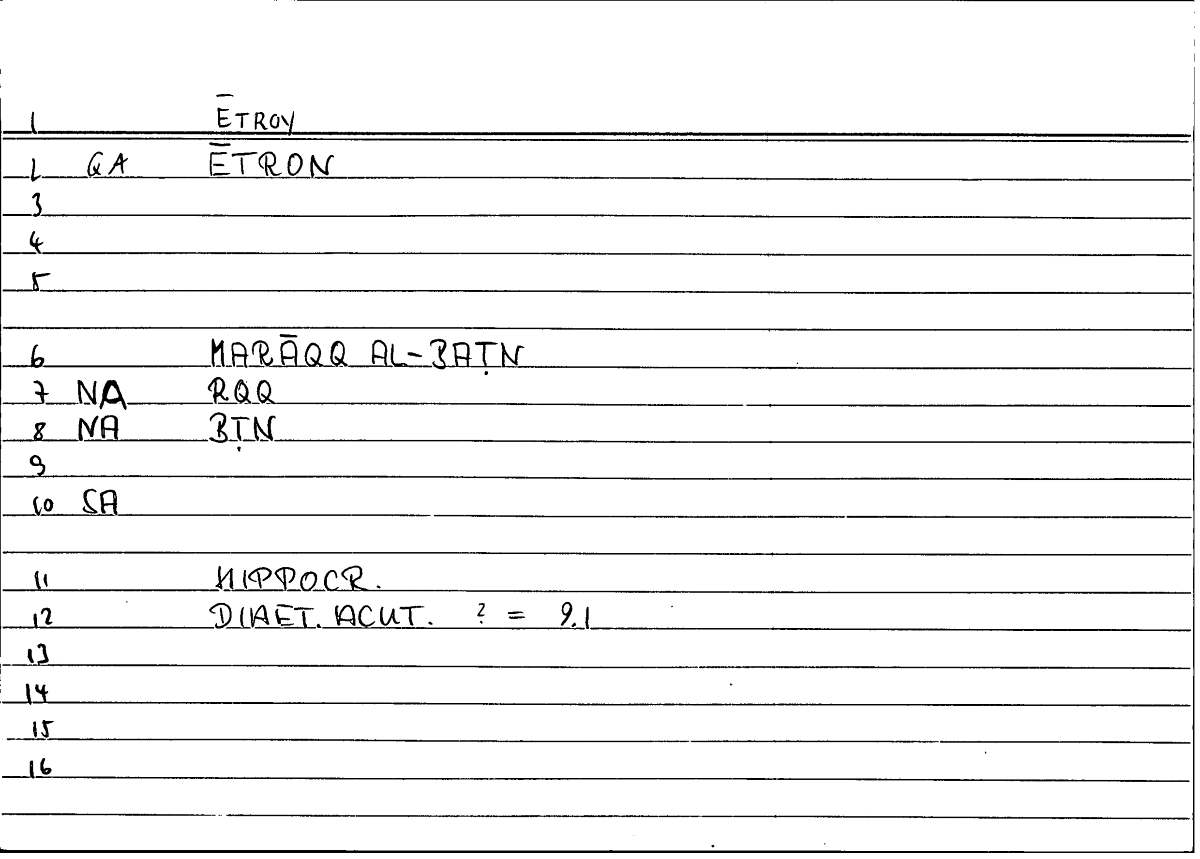 1 ĒTROY
2 GA ĒTRON
3
4
5
6 MARĀQQ AL-BAṬN
7 NA RQQ
8 NA BṬN
9
10 SA
11 HIPPOCR.
12 DIAET. ACUT. ? = 9.1
13
14
15
16